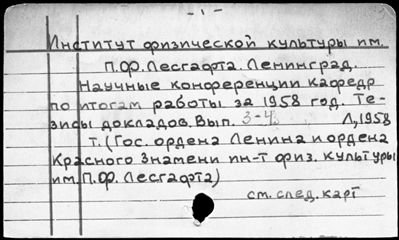 - 1 -
Институт физической культуры им.
П.Ф. Лесгафта. Ленинград.
Научные конференции кафедр
по итогам работы за 1958 год. Те-
зисы докладов. Вып. 3-4. Л, 1958
т. (Гос. ордена Ленина и ордена
Красного Знамени ин-т физ. культуры
им. П.Ф. Лесгафта)
см. след. карт